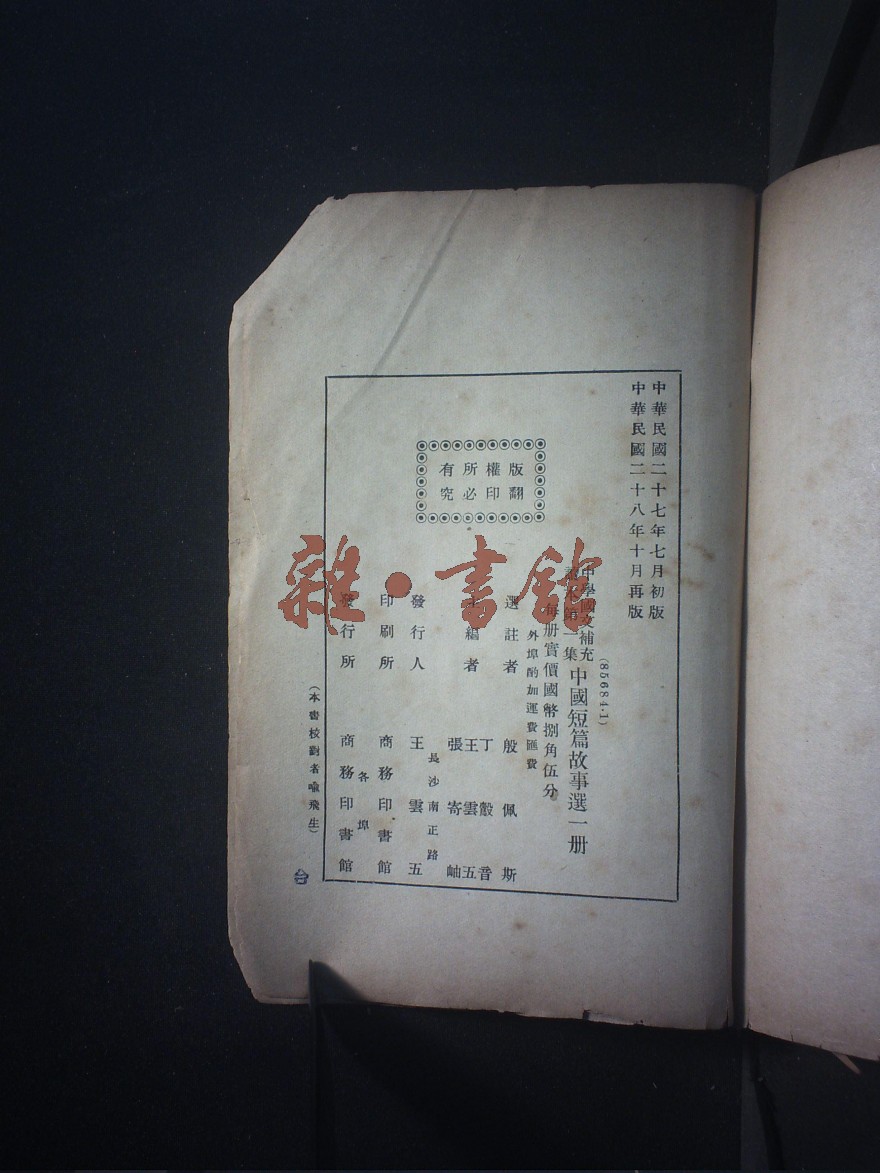 中華民國二十七年七月初版
中華民國二十八年十月再版
(85684·1)
中學國文補充
讀本第一集
中國短篇故事選一册
每册實價國幣捌角伍分
外埠酌加運費匯費
版權所有
翻印必究
選註者 殷佩斯
丁㱿音
主編者 王雲五
張寄岫
發行人 王雲五
長沙南正路
印刷所 商務印書館
各埠
發行所 商務印書館
(本書校對者喩飛生)
雜·書館